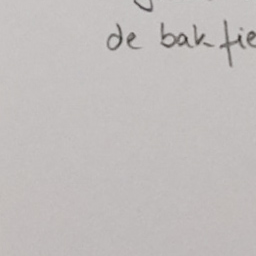 de bakfie